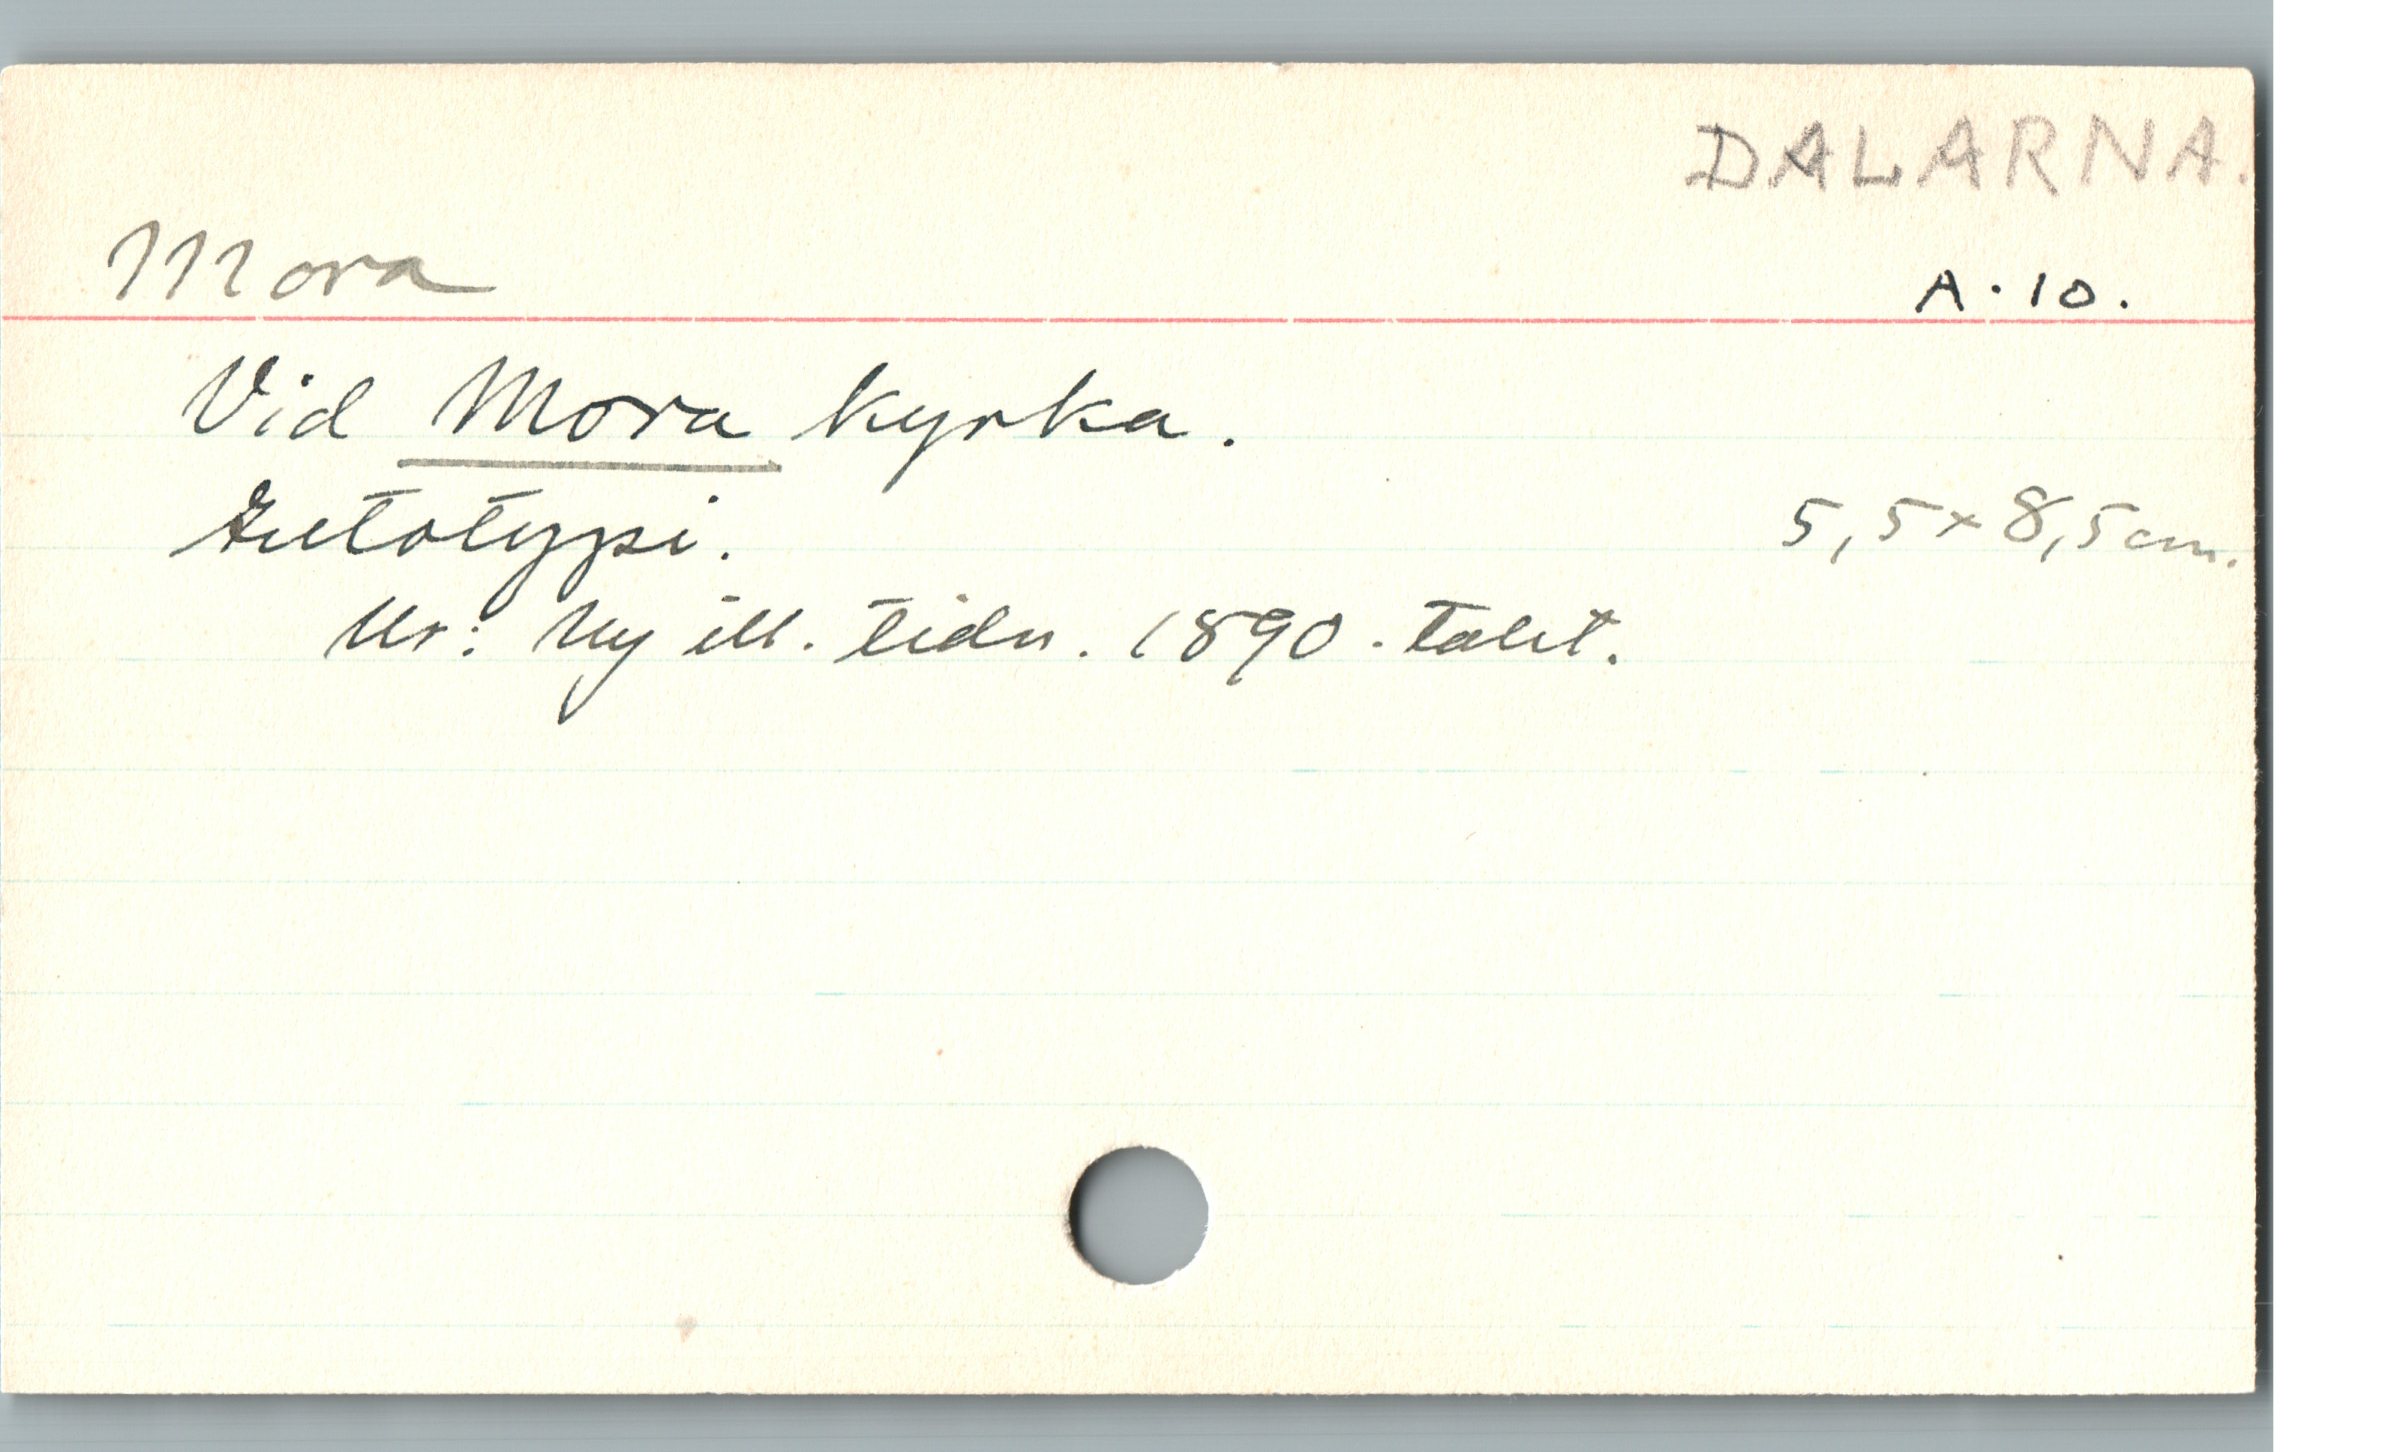 DALARNA.
Mora
A. 10.
Vid Mora kyrka.
Autotypi.
5,5 x 8,5 cm.
Ur: Ny ill. tidn. 1890-talet.